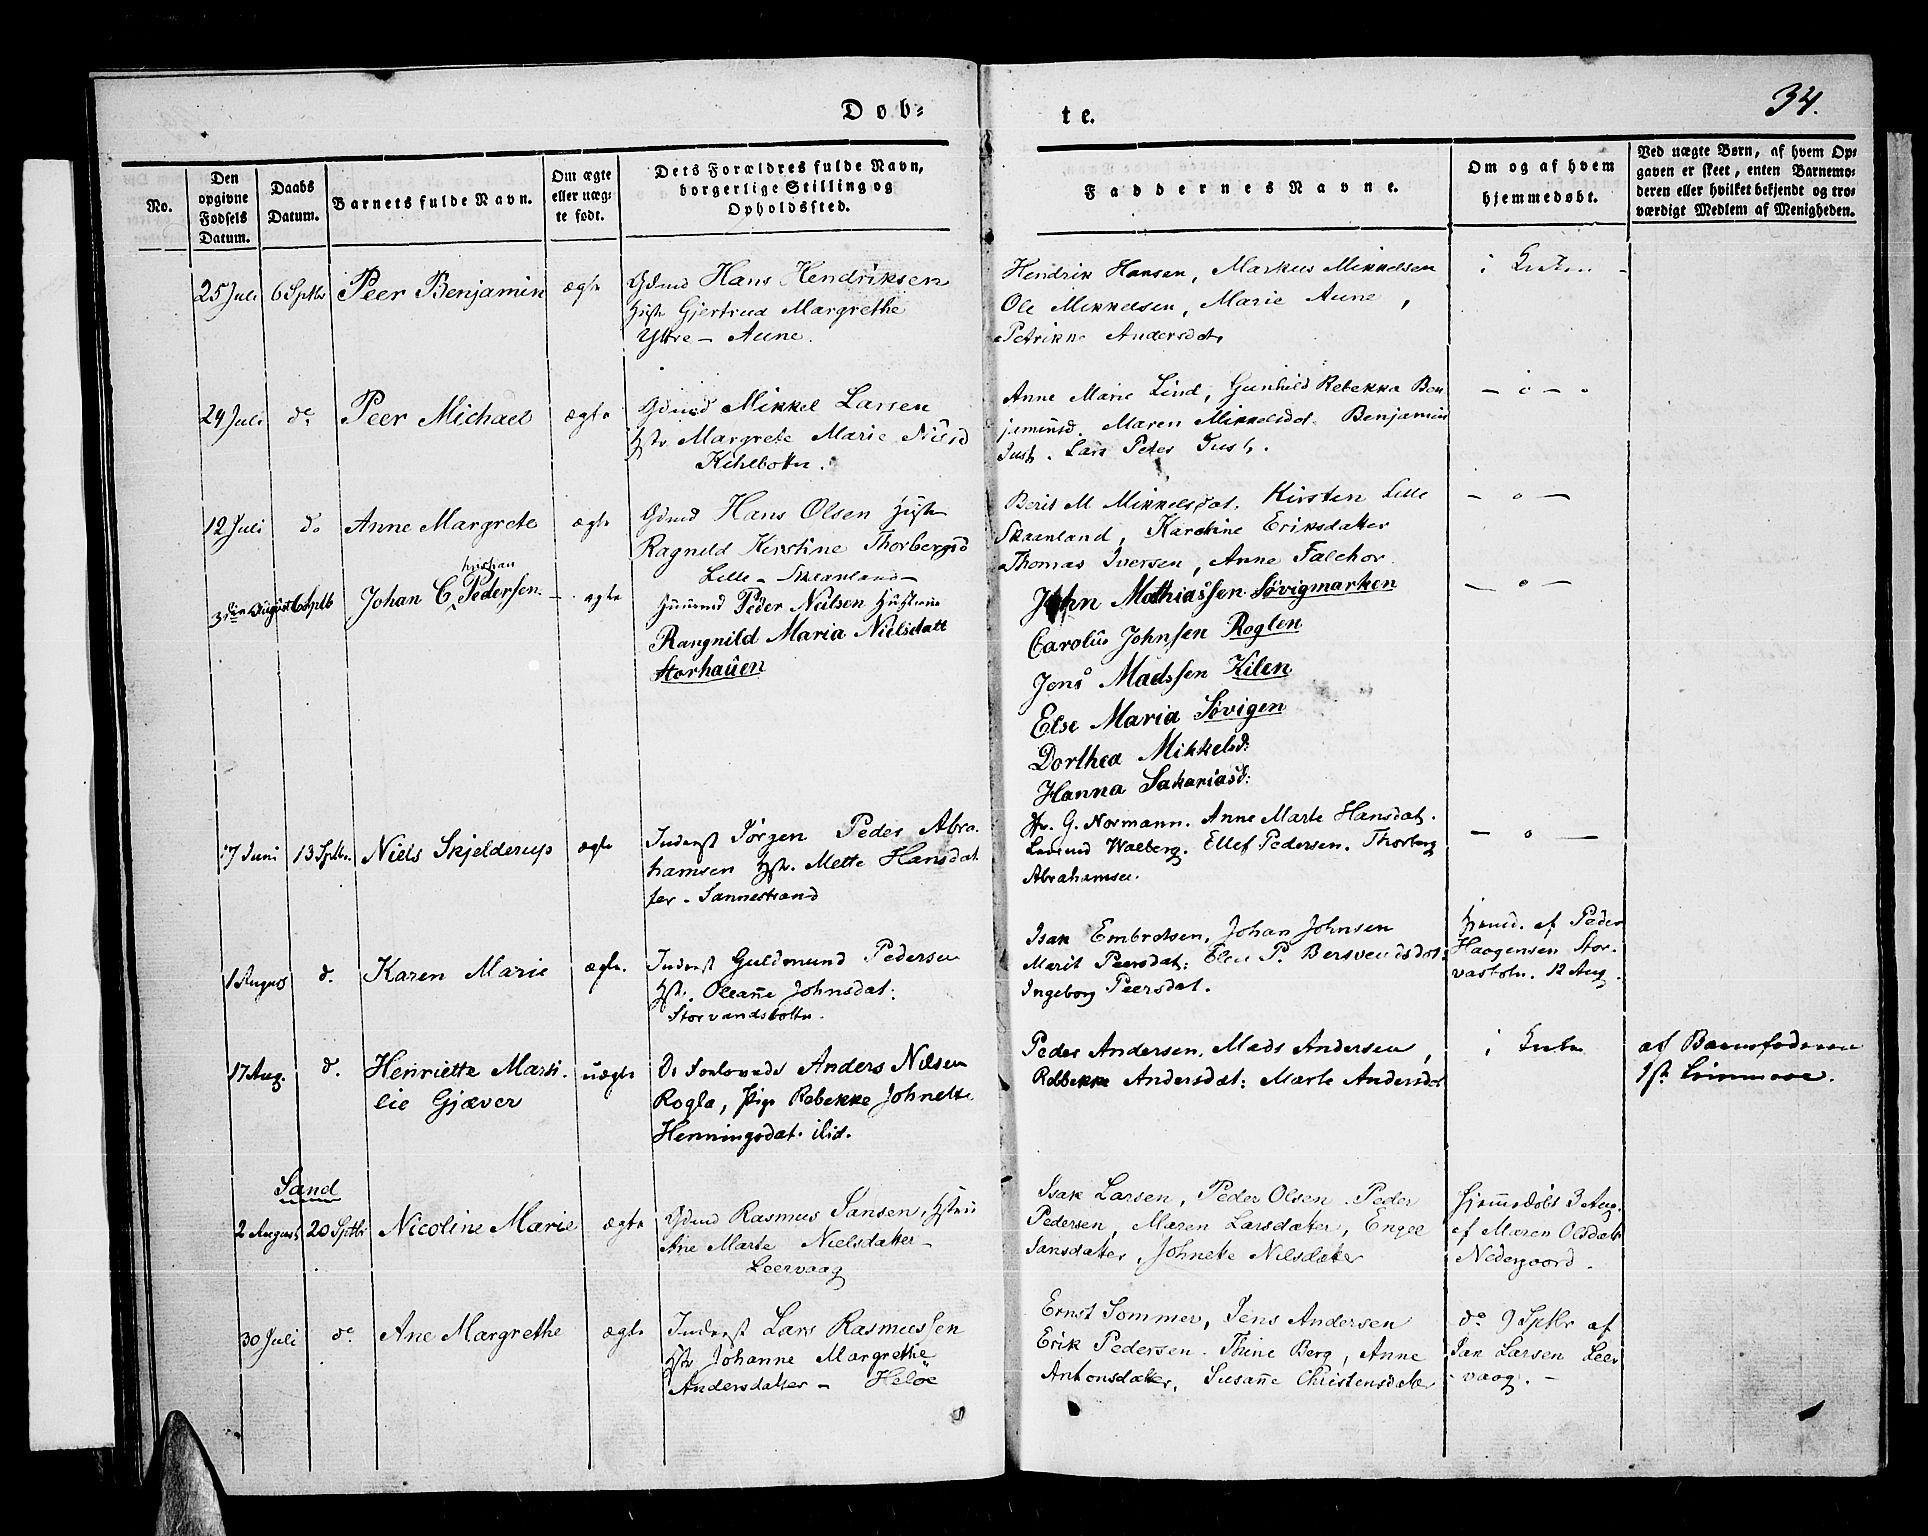 Døb-
te.
34.
No.
Den opgivne Fødsels Datum.
Daabs Datum.
Barnets fulde Navn.
Om ægte eller uæg-
te født.
Dets Forældres fulde Navn,
borgerlige Stilling og
Opholdssted.
Faddernes Navne.
Om og af hvem
hjemmedøbt.
Ved uægte Børn, af hvem Op-
gaven er skeet, enten Barnemo-
deren eller hvilket bekjendt og tro-
værdigt Medlem af Menigheden.
25 Juli 6 Septbr Peer Benjamin ægte Gdmd Hans Hendriksen
Hust Gjertrud Margrethe
Yttre - Aune.
Hendrik Hansen, Markus Mikkelsen
Ole Mikkelsen, Marie Aune,
Petrikke Andersdat,
i
29 Juli do Peer Michael ægte Gdmd Mikkel Larsen
Hstr Margrete Marie Nilsd
Kihlbotn.
Anne Marie Lind, Gunhild Rebekka Ben
jaminsd. Maren Mikkelsdat Benjamin
Just. Lars Peter Just.
- " - "
12 Juli do Anne Margrete ægte Gdmd Hans Olsen Hust
Ragnild Kirstine Thorbergsd
Lille - Skeanland -
Berit M Mikkelsdat. Kirsten Lille
Skaanland, Karoline Eriksdatter
Thomas Iversen, Anne Falchor
- " -
3die August 6 Septb Johan C. Pedersen. - ægte Huusmd Peder Neilsen Hustrue
hristian
Rangnild Maria Nielsdatt
Storhauen
John Mathiassen Søvigmarken
Carolus Johnsen Roglen
Jens Madssen Kilen
Else Maria Søvigen
Dorthea Mikkelsd:
Hanna Sakariasd:
- " -
17 Juni 13 Sptbr. Niels Skjelderup ægte Inderst Jørgen Peder Abra-
hamsen Hstr. Mette Hansdat
ter - Sannestrand
Hr. G. Normann. Anne Marte Hansdat.
Walberg. Ellef Pedersen. Thorberg
Abrahamsen.
- " -
1 August d. Karen Marie ægte. Inderst Guldmund Pedersen
Hstr. Oleane Johnsdat:
Storvandsbotn.
Isak Embretsen, Johan Johnsen
Marit Peersdat: Elen P. Bersvendsdat:
Ingeborg Peersdat.
hjemd. af Peder
Haagensen Stor-
vasbotn. 12 Aug.
17 Aug. d. Henriette Marsi-
lie Gjæver
uægte De Forlovede Anders Nilsen
Rogla, Pige Rebekke Johnette
Henningsdat. ibid.
Peder Andersen, Mads Andersen,
Rebbekke Andersdat: Marte Andersdat
i
af Barnefaderen
1st Leiermaal.
Sand
2 August 20 Sptbr Nicoline Marie ægte Gdmd Rasmus Jansen, Hstru
Ane Marte Nielsdatter -
Leervaag
Isak Larsen, Peder Olsen. Peder
Pedersen, Maren Larsdatter, Engel
Jansdatter, Johneke Nilsdatter
Hjemmedøbt 3 Aug.
af Maren Olsdatt
Nedergaard.
30 Juli do Ane Margrethe ægte Inderst Lars Rasmussen
Hstr Johanne Margrethe
Andersdatter - Heløe
Ernst Sommer, Jens Andersen
Erik Pedersen. Thine Berg, Anne
Antonsdatter, Susanne Christensdatter
do 9 Sptbr af
Jan Larsen Leer
- vaag. -